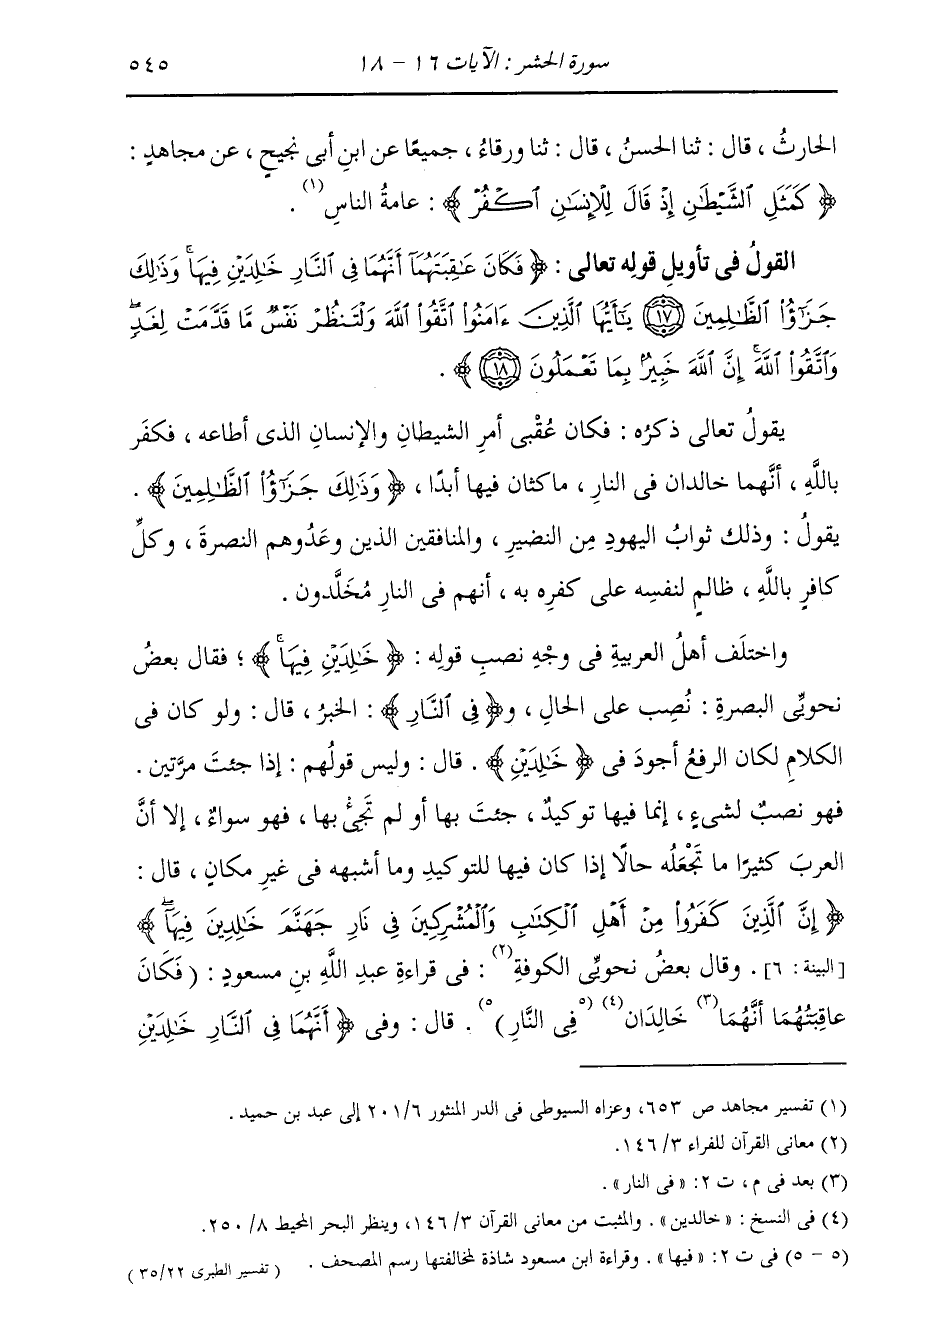 سورة الحشر : الآيات ١٦ - ١٨ ٥٤٥
الحارثُ ، قال : ثنا الحسنُ ، قال : ثنا ورقاءُ ، جميعًا عن ابنِ أبى نجيحٍ ، عن مجاهدٍ :
﴿ كَمَثَلِ ٱلشَّيْطَٰنِ إِذْ قَالَ لِلْإِنسَٰنِ ٱكْفُرْ ﴾ : عامةُ الناسِ(١) .
القولُ فى تأويلِ قولِه تعالى : ﴿ فَكَانَ عَٰقِبَتَهُمَآ أَنَّهُمَا فِى ٱلنَّارِ خَٰلِدَيْنِ فِيهَا ۚ وَذَٰلِكَ
جَزَٰٓؤُا۟ ٱلظَّٰلِمِينَ ﴿١٧﴾ يَٰٓأَيُّهَا ٱلَّذِينَ ءَامَنُوا۟ ٱتَّقُوا۟ ٱللَّهَ وَلْتَنظُرْ نَفْسٌ مَّا قَدَّمَتْ لِغَدٍ ۖ
وَٱتَّقُوا۟ ٱللَّهَ ۚ إِنَّ ٱللَّهَ خَبِيرٌۢ بِمَا تَعْمَلُونَ ﴿١٨﴾ ﴾ .
يقولُ تعالى ذكرُه : فكان عُقْبى أمرِ الشيطانِ والإنسانِ الذى أطاعه ، فكفَر
باللَّهِ ، أنَّهما خالدان فى النارِ ، ماكثان فيها أبدًا ، ﴿ وَذَٰلِكَ جَزَٰٓؤُا۟ ٱلظَّٰلِمِينَ ﴾ .
يقولُ : وذلك ثوابُ اليهودِ مِن النضيرِ ، والمنافقين الذين وعَدُوهم النصرةَ ، وكلِّ
كافرٍ باللَّهِ ، ظالمٍ لنفسِه على كفرِه به ، أنهم فى النارِ مُخَلَّدون .
واختلَف أهلُ العربيةِ فى وجْهِ نصبِ قولِه : ﴿ خَٰلِدَيْنِ فِيهَا ۚ ﴾ ؛ فقال بعضُ
نحويِّى البصرةِ : نُصِب على الحالِ ، و﴿ فِى ٱلنَّارِ ﴾ : الخبرُ ، قال : ولو كان فى
الكلامِ لكان الرفعُ أجودَ فى ﴿ خَٰلِدَيْنِ ﴾ . قال : وليس قولُهم : إذا جئتَ مرَّتين .
فهو نصبٌ لشىءٍ ، إنما فيها توكيدٌ ، جئتَ بها أو لم تَجِئْ بها ، فهو سواءٌ ، إلا أنَّ
العربَ كثيرًا ما تَجْعَلُه حالًا إذا كان فيها للتوكيدِ وما أشبهه فى غيرِ مكانٍ ، قال :
﴿ إِنَّ ٱلَّذِينَ كَفَرُوا۟ مِنْ أَهْلِ ٱلْكِتَٰبِ وَٱلْمُشْرِكِينَ فِى نَارِ جَهَنَّمَ خَٰلِدِينَ فِيهَآ ۚ ﴾
[البينة : ٦] . وقال بعضُ نحويِّى الكوفةِ(٢) : فى قراءةِ عبدِ اللَّهِ بنِ مسعودٍ : ( فَكَانَ
عاقِبَتُهُمَا أنَّهُمَا(٣) خَالِدَان(٤) (٥فِى النَّارِ )٥) . قال : وفى ﴿ أَنَّهُمَا فِى ٱلنَّارِ خَٰلِدَيْنِ
(١) تفسير مجاهد ص ٦٥٣، وعزاه السيوطى فى الدر المنثور ٢٠١/٦ إلى عبد بن حميد .
(٢) معانى القرآن للفراء ٣/ ١٤٦.
(٣) بعد فى م ، ت ٢: «فى النار» .
(٤) فى النسخ : «خالدين» . والمثبت من معانى القرآن ٣/ ١٤٦، وينظر البحر المحيط ٨/ ٢٥٠.
(٥ - ٥) فى ت ٢: «فيها» . وقراءة ابن مسعود شاذة لمخالفتها رسم المصحف . ( تفسير الطبرى ٣٥/٢٢ )